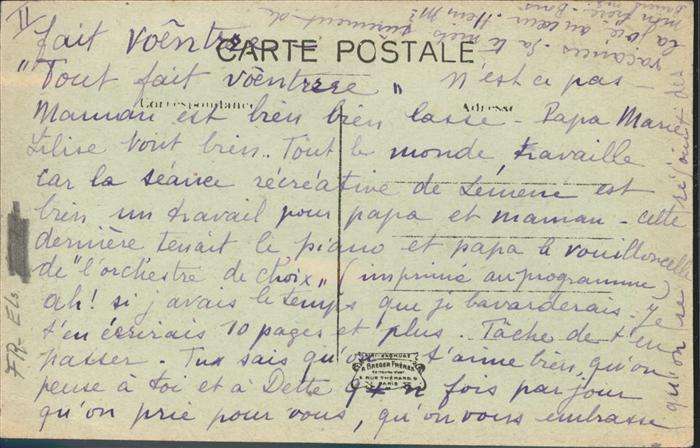 II
fait voêntrree
CARTE POSTALE
"Tout fait voêntrree" N'est ce pas -
Correspondance
Adresse
Maman est bien bien lasse - Papa Marie
Lilise vont bien. Tout le monde travaille
car la séance récréative de Lémenc est
bien un travail pour papa et maman - cette
dernière tenait le piano et papa le vouilloncelle
de "l'orchestre de choix" (imprimé au programme)
ah! si j'avais le temps que je bavarderais - je
t'en écrirais 10 pages et plus.. Tâche de t'en
passer - Tu sais qu'on t'aime bien, qu'on
pense à toi et à Dette n fois par jour
qu'on prie pour vous, qu'on vous embrasse
qu'on se réjouit des
vacances - Ta te
la joie au cœur.
mon
BREGER FRÈRES
9 RUE THÉNARD
PARIS
FR-Els